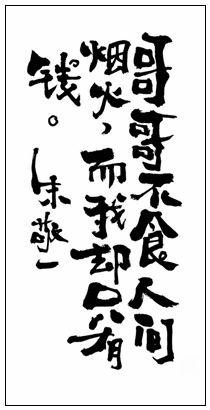 哥哥不食人间
烟火，而我却只有
钱。
朱敬一